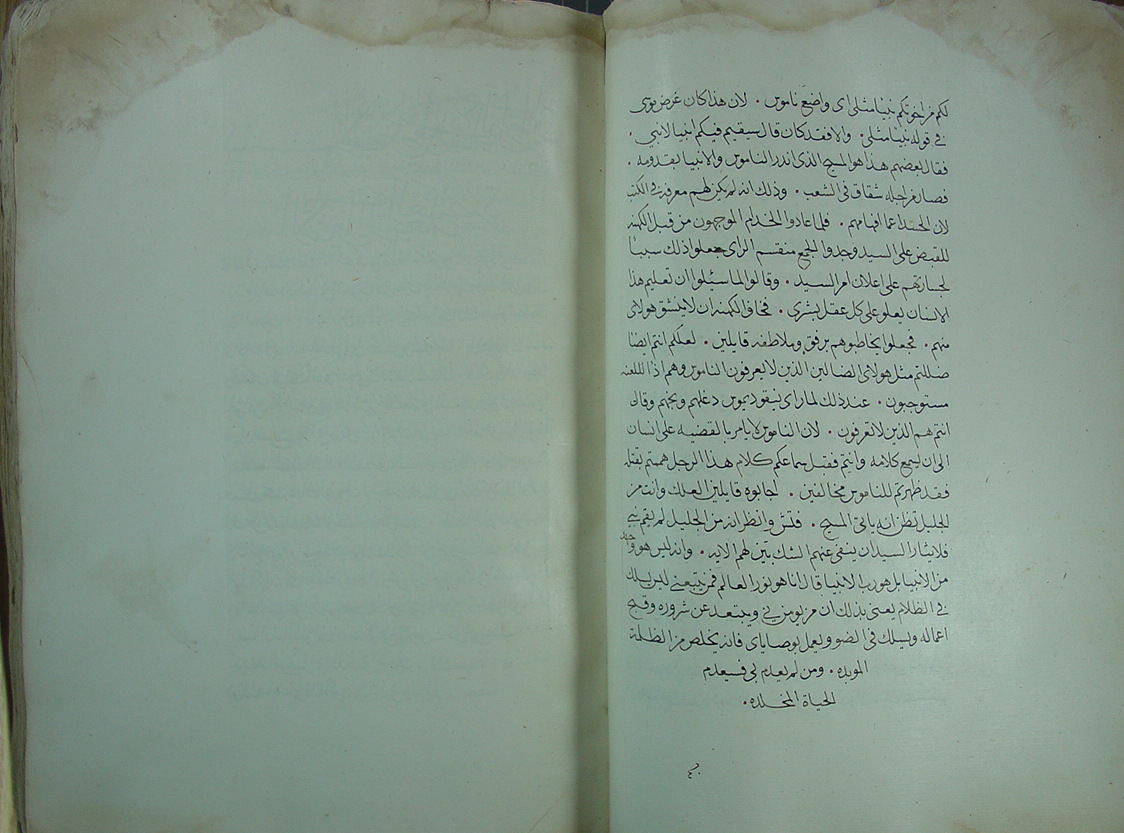 لكم من اخوتكم نبيًا مثلى اى واضع ناموس . لان هذا كان غرض موسى
فى قوله نبيًا مثلى . والا فقد كان قال سيقيم فيكم انبيا لا نبى .
فقال بعضهم هذا هو المسيح الذى انذر الناموس والانبيا بقدومه .
فصار من اجله شقاق فى الشعب . وذلك انه لم يكن لهم معرفه فى الكتب
لان الحسد اعما افهامهم . فلما عادوا الخدام الموجهون من قبل الكهنه
للقبض على السيد وجدوا الجمع منقسم الراى فجعلوا ذلك سببًا
لجسارتهم على اعلان امر السيد . وقالوا لما سئلوا ان تعليم هذا
الانسان يعلو على كل عقل بشرى . فخاف الكهنه ان لا ينشق هولاى
منهم . فجعلوا يخاطبوهم برفق وملاطفه قايلين . لعلكم انتم ايضًا
ضللتم مثل هولاى الضالين الذين لا يعرفون الناموس وهم اذًا اللعنه
مستوجبون . عند ذلك لما راى نيقوديموس دغلهم وبخهم وقال
انتم هم الذين لا تعرفون . لان الناموس لا يامر بالقضيه على انسان
الى ان يسمع كلامه وانتم فقبل سماعكم كلام هذا الرجل هممتم بقتله
فقد ظهرتم للناموس مخالفين . اجابوه قايلين العلك وانت من
الجليل تظن انه ياتى المسيح . فتش وانظر انه من الجليل لم يقم نبى
فلايثار السيد ان ينفى عنهم الشك بتين لهم الايه . وانه ليس هو واحد
من الانبيا بل هو رب الانبيا قال انا هو نور العالم فمن يتبعنى ليس يسلك
فى الظلام يعنى بذلك ان من يومن بى ويبتعد عن شروره وقبح
اعماله ويسلك فى الضو ويعمل بوصاياى فانه يخلص من الظلمة
الموبده . ومن لم يعدم بى فسيعدم
الحياة المخلده .